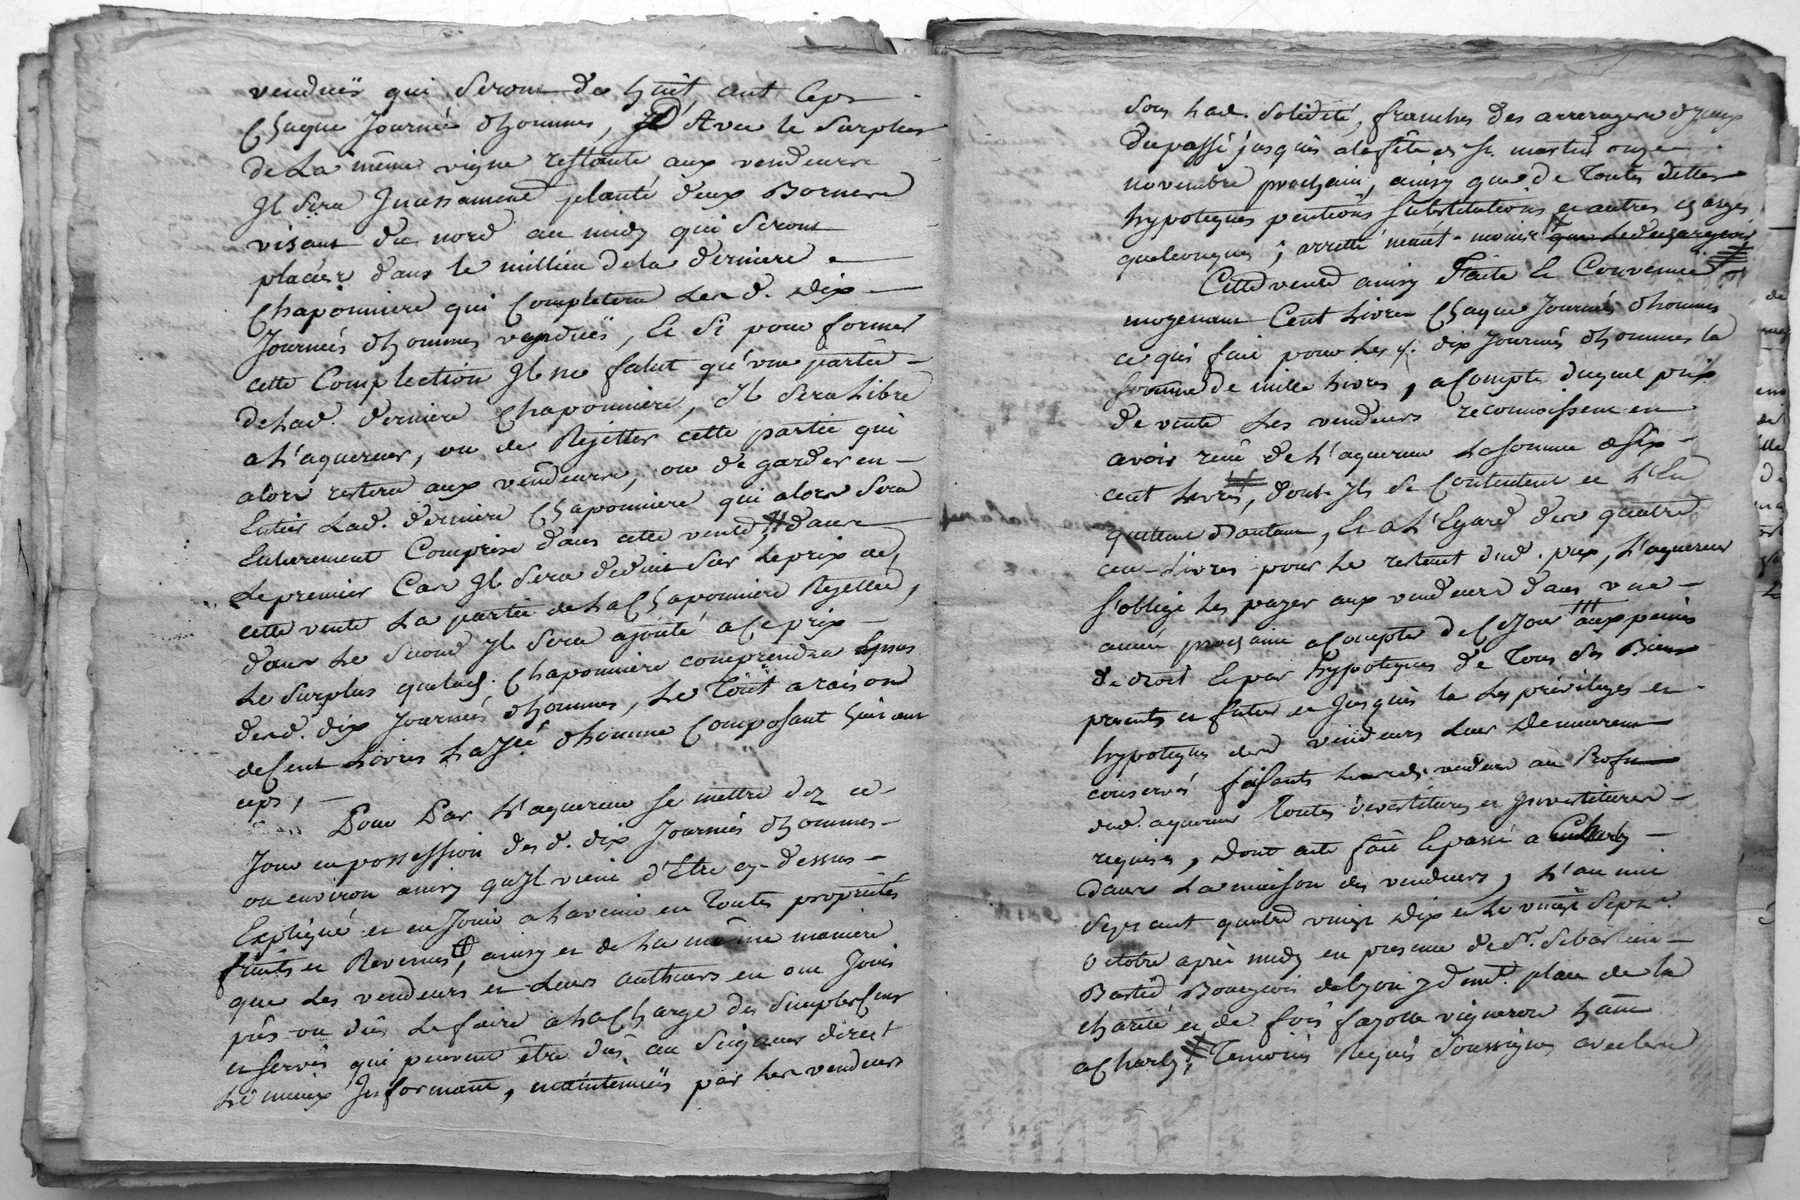 vendües qui seront de huit cent ceps
chaque Journée d'hommes, D'Avec le surplus
de La même vigne restante aux vendeurs
Il sera Incessament planté deux Bornes
visant du nord au midy qui seront
placées dans le millieu de la derniere
chaponniere qui completera Lesd. dix
Journées d'hommes vendües, Et si pour former
cette Complection Il ne falut qu'une partie
de Lad. derniere chaponniere, Il sera Libre
a L'aquereur, ou de Rejetter cette partie qui
alors restera aux vendeurs, ou de garder en
Entier Lad. derniere chaponniere qui alors sera
Entierement Comprise dans cette vente, dans
Le premier Cas Il sera deduit sur Le prix de
cette vente La partie de La chaponniere Rejettée,
dans Le second Il sera ajouté a Ce prix
Le surplus que lad. chaponniere comprendra
desd. dix Journées d'hommes, Le Tout a raison
de Cent Livres La J.ée d'homme composant huit cent
ceps,
Pour Par L'aquereur se mettre dez ce
Jour en possession desd. dix Journées d'hommes
ou environ ainsy qu'Il vient d'Etre cy-dessus
Expliqué et en Jouir a L'avenir en Toutes proprietés
fruits et Revenus, ainsy et de La même maniere
que Les vendeurs et Leurs autheurs en ont Joui
pû ou dû Le faire a La Charge des simples Cens
et servis qui peuvent être dûs au seigneur direct
Le mieux Informant, maintenües par Les vendeurs
sous Lad. solidité, franches des arrerages d'Iceux
du passé jusqu'à la fête de St. martin onze
novembre prochain, ainsy que de Toutes dettes
hypoteques pentions substitutions et autres charges
quelconques;
Cette vente ainsy Faite Et Convenüe
moyenant Cent Livres Chaque Journée d'hommes
ce qui fait pour Les d. dix Journées d'hommes la
somme de mille livres, a Compte duquel prix
de vente Les vendeurs reconnoissent en
avoir reçû de L'aquereur La somme de six
cent Livres, dont Ils se Contentent et L'En
quittent d'autant, Et a L'Egard des quatre
cent Livres pour Le restant dud. prix, L'aquereur
s'oblige Les payer aux vendeurs dans une
année prochaine a Compter de Ce Jour aux peines
de droit Et par hypoteques de Tous ses Biens
presents et futurs et Jusques la Les privileges et
hypoteques desd. vendeurs Leur Demeurent
conservés faisants Lesd. vendeurs au Profit
dud. aquereur Toutes devestitures et Investitures
requises, Dont acte fait Et passé a Charly
Dans La maison des vendeurs, L'an mil
sept cent quatre vingt dix et Le vingt sept.e
octobre après midy en presence de S.r Sebastien
Bourgeois de Lyon y dem.t place de la
charité et de vigneron hâ.nt
a Charly, Temoins Requis Soussignés avec Les